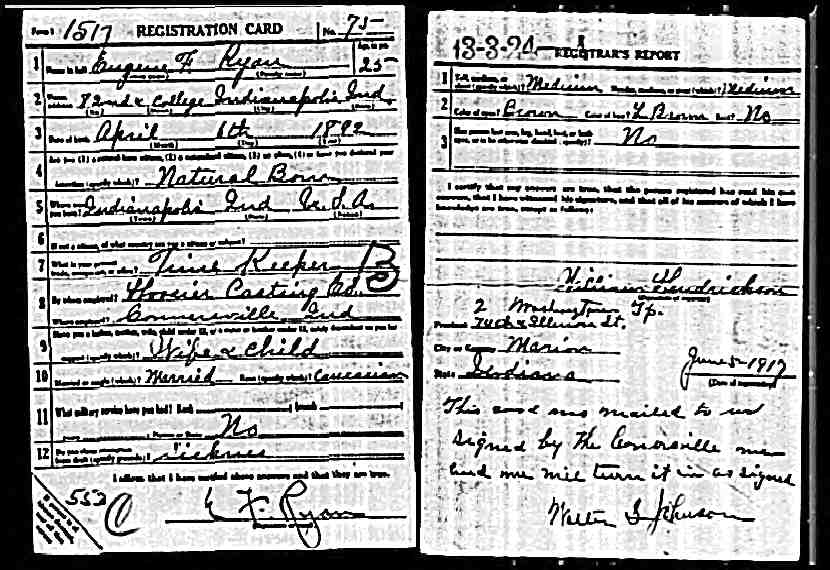 Form 1 1517 REGISTRATION CARD No. 75
Age, in yrs.
1 Name in full Eugene F. Ryan 25
(Given name) (Family name)
2 Home address 82nd & College Indianapolis Ind.
(No.) (Street) (City) (State)
3 Date of birth April 6th 1892
(Month) (Day) (Year)
Are you (1) a natural born citizen, (2) a naturalized citizen, (3) an alien, (4) or have you declared your
4 intention (specify which)? Natural Born
5 Where were you born? Indianapolis Ind U.S.A.
(Town) (State) (Nation)
6 If not a citizen, of what country are you a citizen or subject?
7 What is your present trade, occupation, or office? Time Keeper B
8 By whom employed? Hoosier Casting Co.
Where employed? Connersville Ind
Have you a father, mother, wife, child under 12, or a sister or brother under 12, solely dependent on you for
9 support (specify which)? Wife & Child
10 Married or single (which)? Married Race (specify which)? Caucasian
11 What military service have you had? Rank branch
years Nation or State No
12 Do you claim exemption from draft (specify grounds)? Sickness
I affirm that I have verified above answers and that they are true.
553 C
E F. Ryan
13-3-24-A REGISTRAR'S REPORT
1 Tall, medium, or short (specify which)? Medium Slender, medium, or stout (which)? Medium
2 Color of eyes? Brown Color of hair? L Brown Bald? No
3 Has person lost arm, leg, hand, foot, or both eyes, or is he otherwise disabled (specify)? No
I certify that my answers are true, that the person registered has read his own
answers, that I have witnessed his signature, and that all of his answers of which I have
knowledge are true, except as follows:
William Hendrickson
(Signature of registrar)
2 Washington Tp.
Precinct 74th & Illinois St.
City or County Marion
State Indiana June 5-1917
(Date of registration)
This card was mailed to us
signed by the Connersville men
and we will turn it in as signed
Walter S Johnson